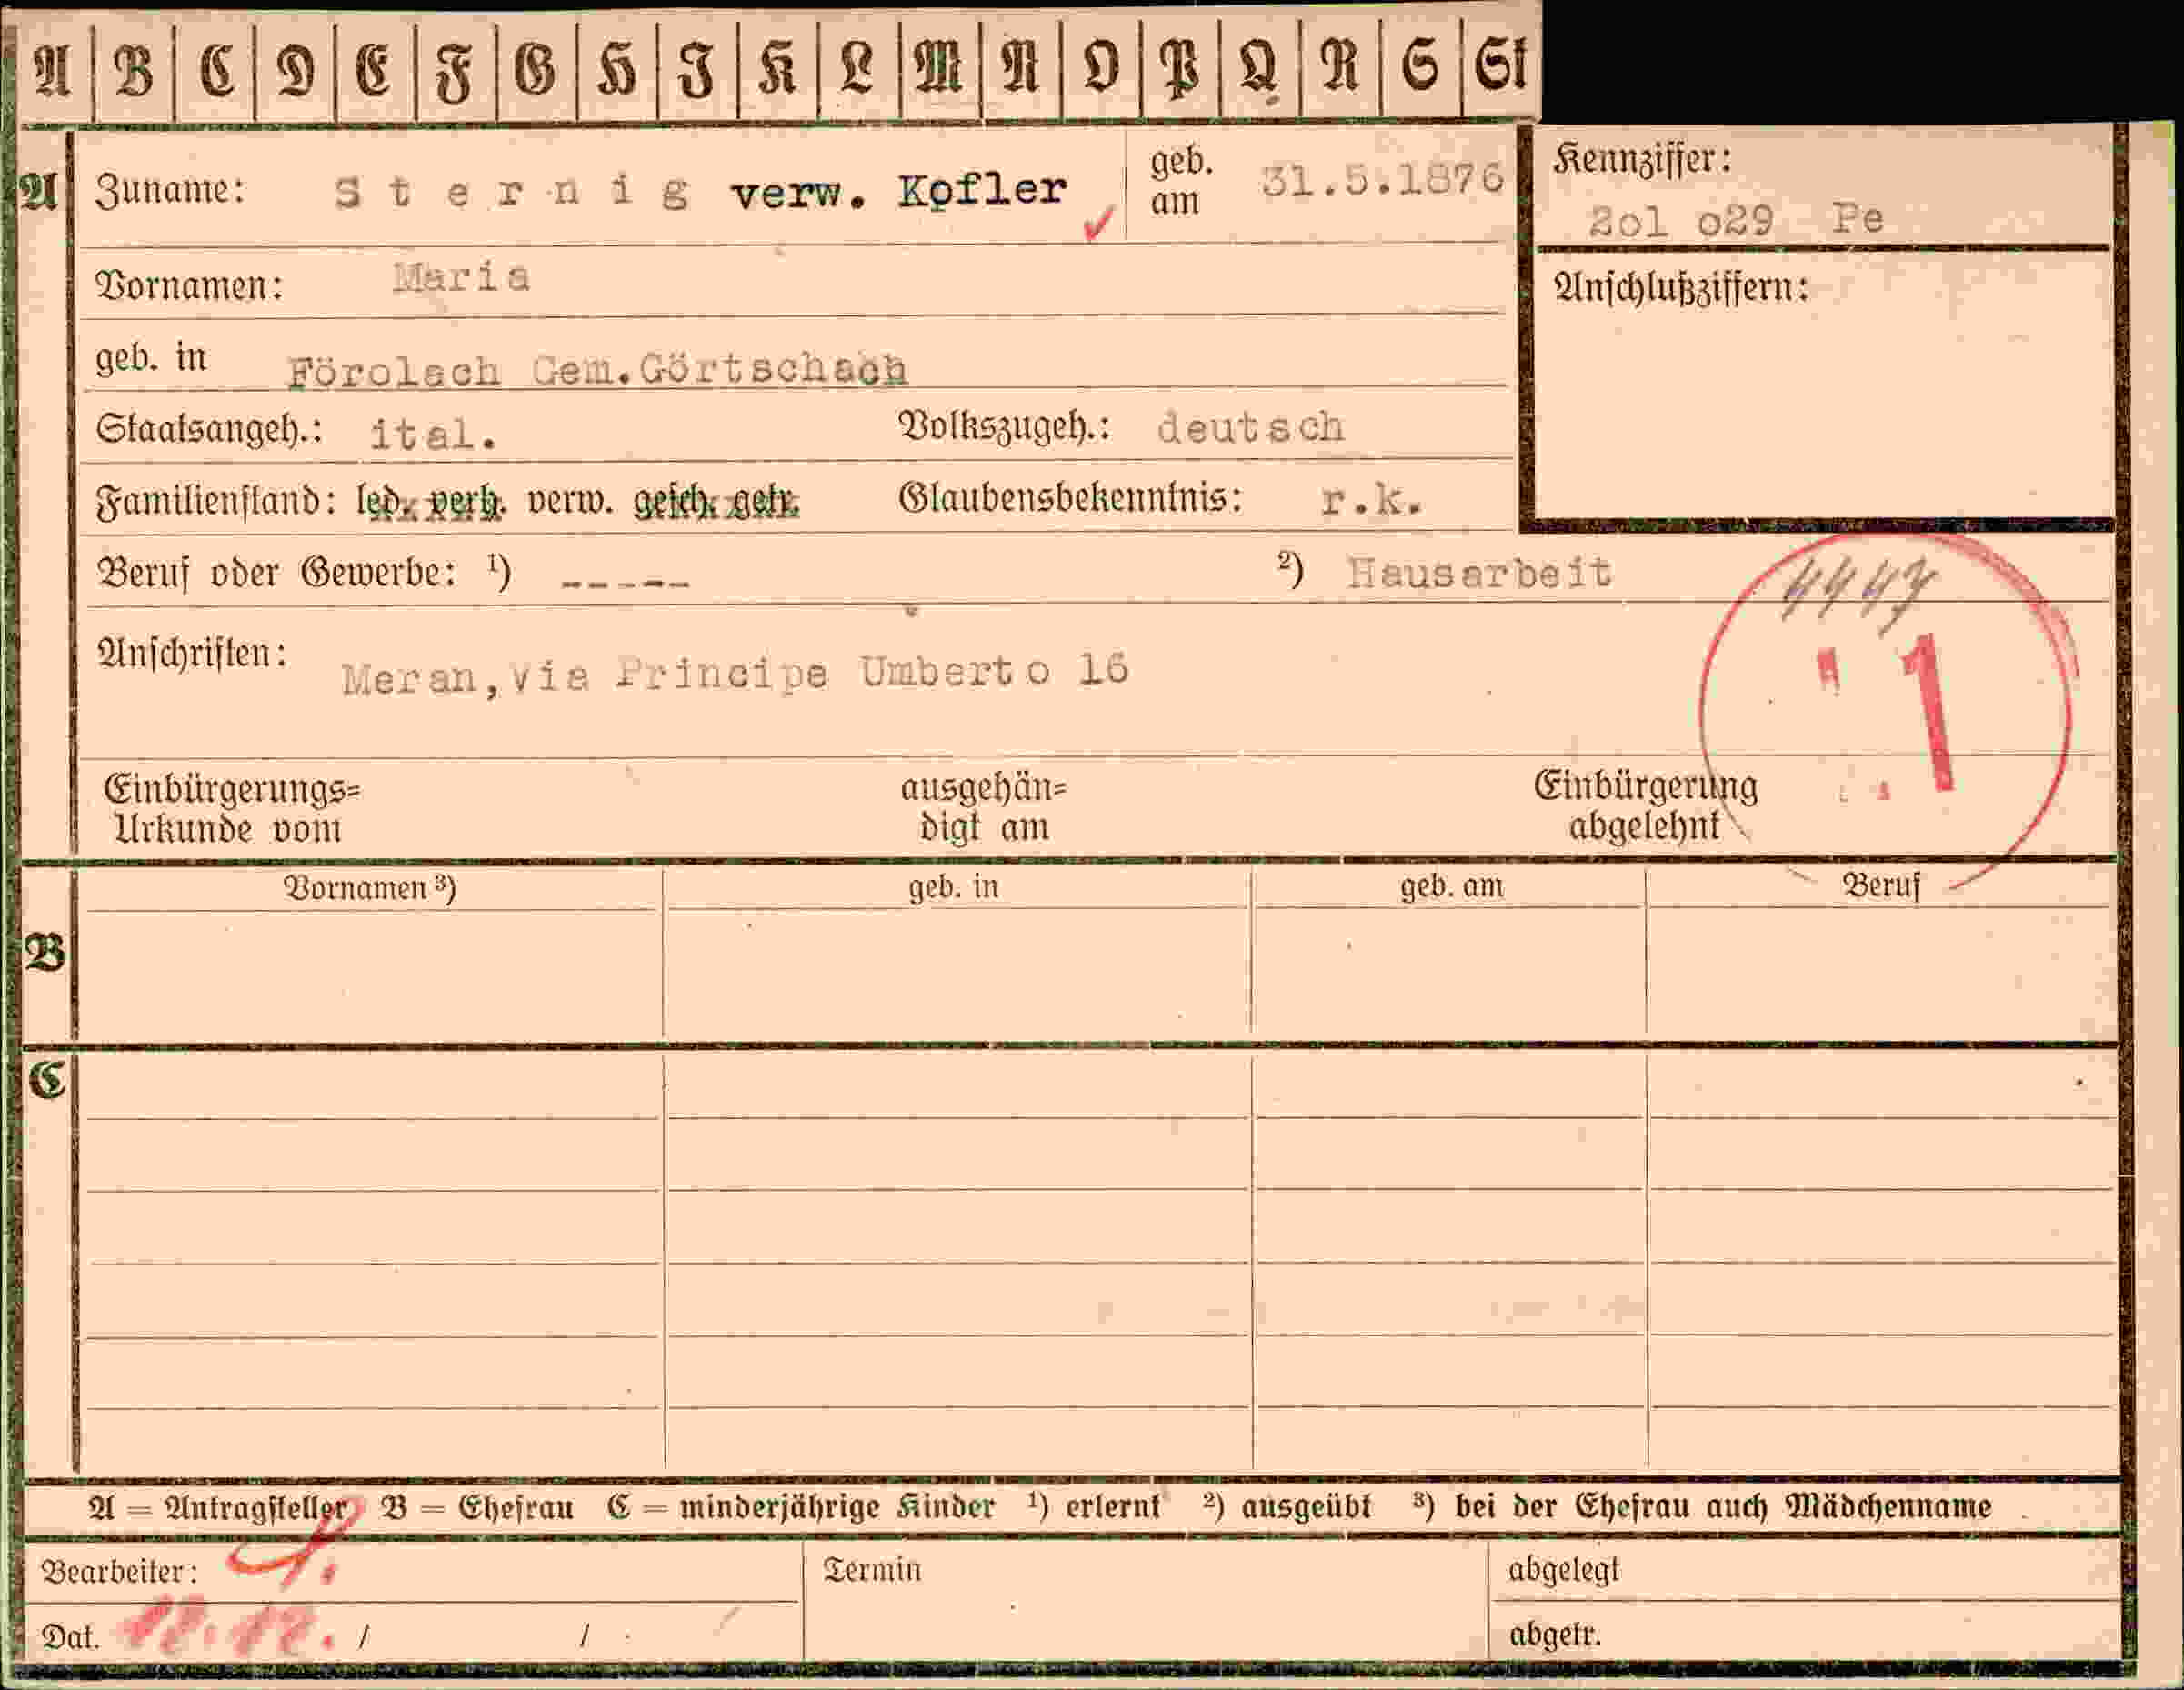 A B C D E F G H I K L M N O P Q R S St
A Zuname: Sternig verw. Kofler geb. am 31.5.1876 Kennziffer: 2ol o29 Pe
Vornamen: Maria Anschlußziffern:
geb. in Förolach Gem.Görtschach
Staatsangeh.: ital. Volkszugeh.: deutsch
Familienstand: led. verh. verw. gesch. getr. Glaubensbekenntnis: r.k.
Beruf oder Gewerbe: ¹) ----- ²) Hausarbeit
4447
Anschriften: Meran,via Principe Umberto 16
1
Einbürgerungs= Urkunde vom ausgehän= digt am Einbürgerung abgelehnt
B Vornamen ³) geb. in geb. am Beruf
C
A = Antragsteller B = Ehefrau C = minderjährige Kinder ¹) erlernt ²) ausgeübt ³) bei der Ehefrau auch Mädchenname
Bearbeiter: Termin abgelegt
Dat. 12.12. / / abgetr.